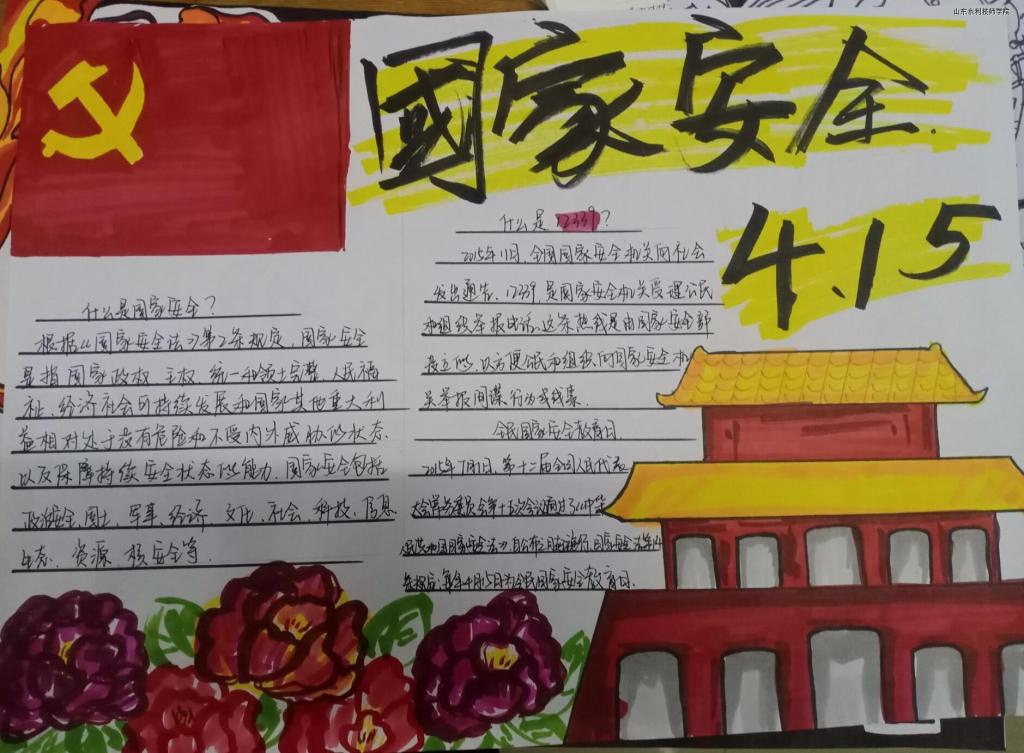 山东水利技师学院
國家安全
4.15
什么是国家安全?
根据《国家安全法》第2条规定,国家安全
是指国家政权、主权、统一和领土完整、人民福
祉、经济社会可持续发展和国家其他重大利
益相对处于没有危险和不受内外威胁的状态.
以及保障持续安全状态的能力.国家安全包括
政治安全、国土、军事、经济、文化、社会、科技、信息
生态、资源、核安全等.
什么是12339?
2015年11日,全国国家安全机关向社会
发出通告,12339是国家安全机关受理公民
和组织举报电话,这条热线是由国家安全部
设立的,以方便公民和组织向国家安全机
关举报间谍行为或线索.
全民国家安全教育日.
2015年7月1日,第十二届全国人民代表
大会常务委员会第十五次会议通过了《中华
人民共和国国家安全法》自公布之日起施行,国家安全法第14
条规定,每年4月15日为全民国家安全教育日.